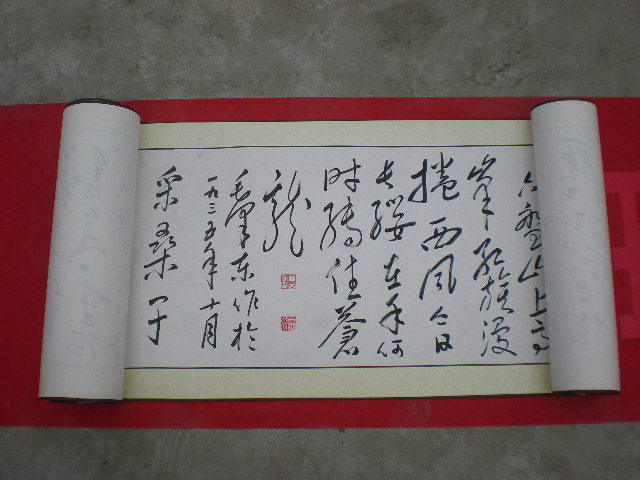 六盘山上高
峯红旗漫
捲西风今日
长缨在手何
时缚住蒼
龍
毛泽东作於
一九三五年十月
采桑子